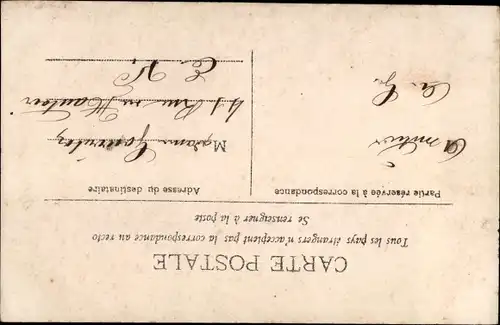 CARTE POSTALE
Tous les pays étrangers n'acceptent pas la correspondance au recto
Se renseigner à la poste
Partie réservée à la correspondance
Adresse du destinataire
Madame
41 Rue
E. V.